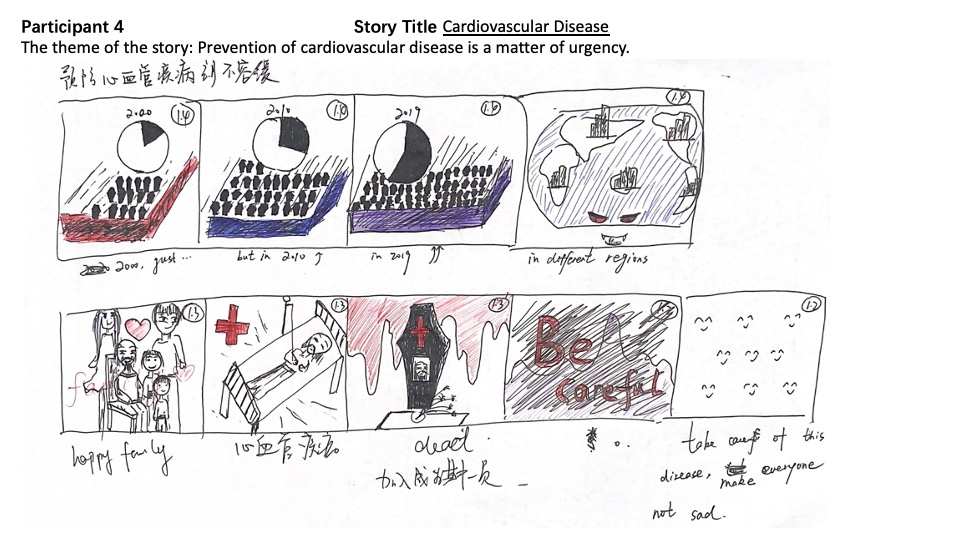 Participant 4 Story Title Cardiovascular Disease
The theme of the story: Prevention of cardiovascular disease is a matter of urgency.
预防心血管疾病刻不容缓
2000 1.4 2010 1.4 2019 1.4 1.4
2000, just... but in 2010 ↑ in 2019 ↑↑ in different regions
1.3 1.3 1.3 1.2
Be
careful
happy family 心血管疾病 dead. take care of this
加入成为其中一员 disease, make everyone
not sad.